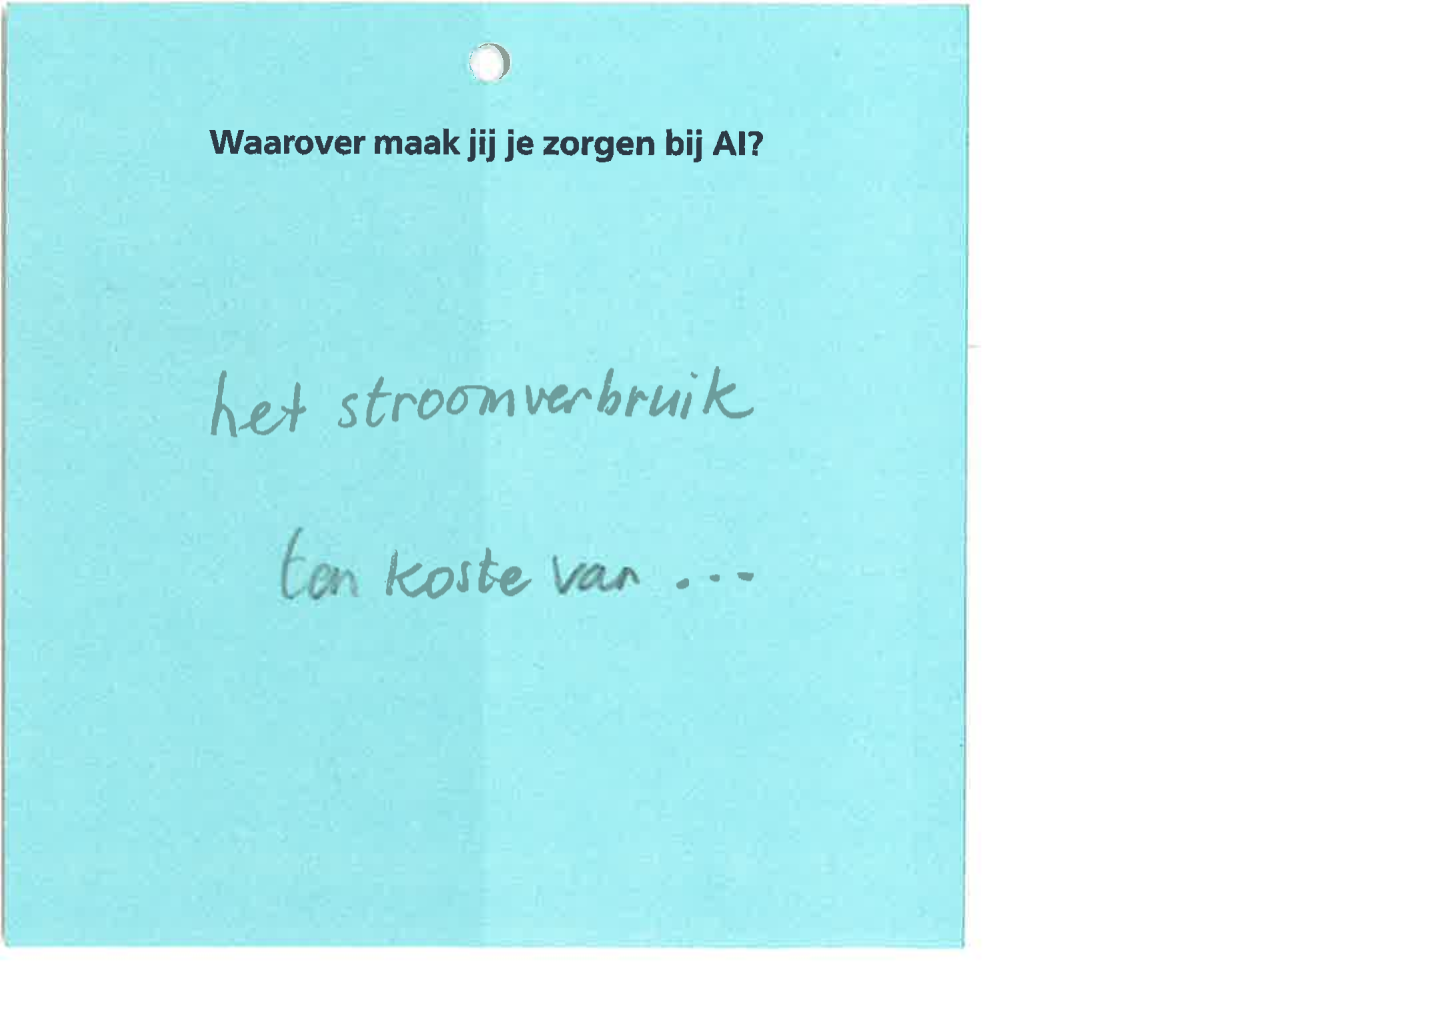 Waarover maak jij je zorgen bij AI?
het stroomverbruik
ten koste van ...